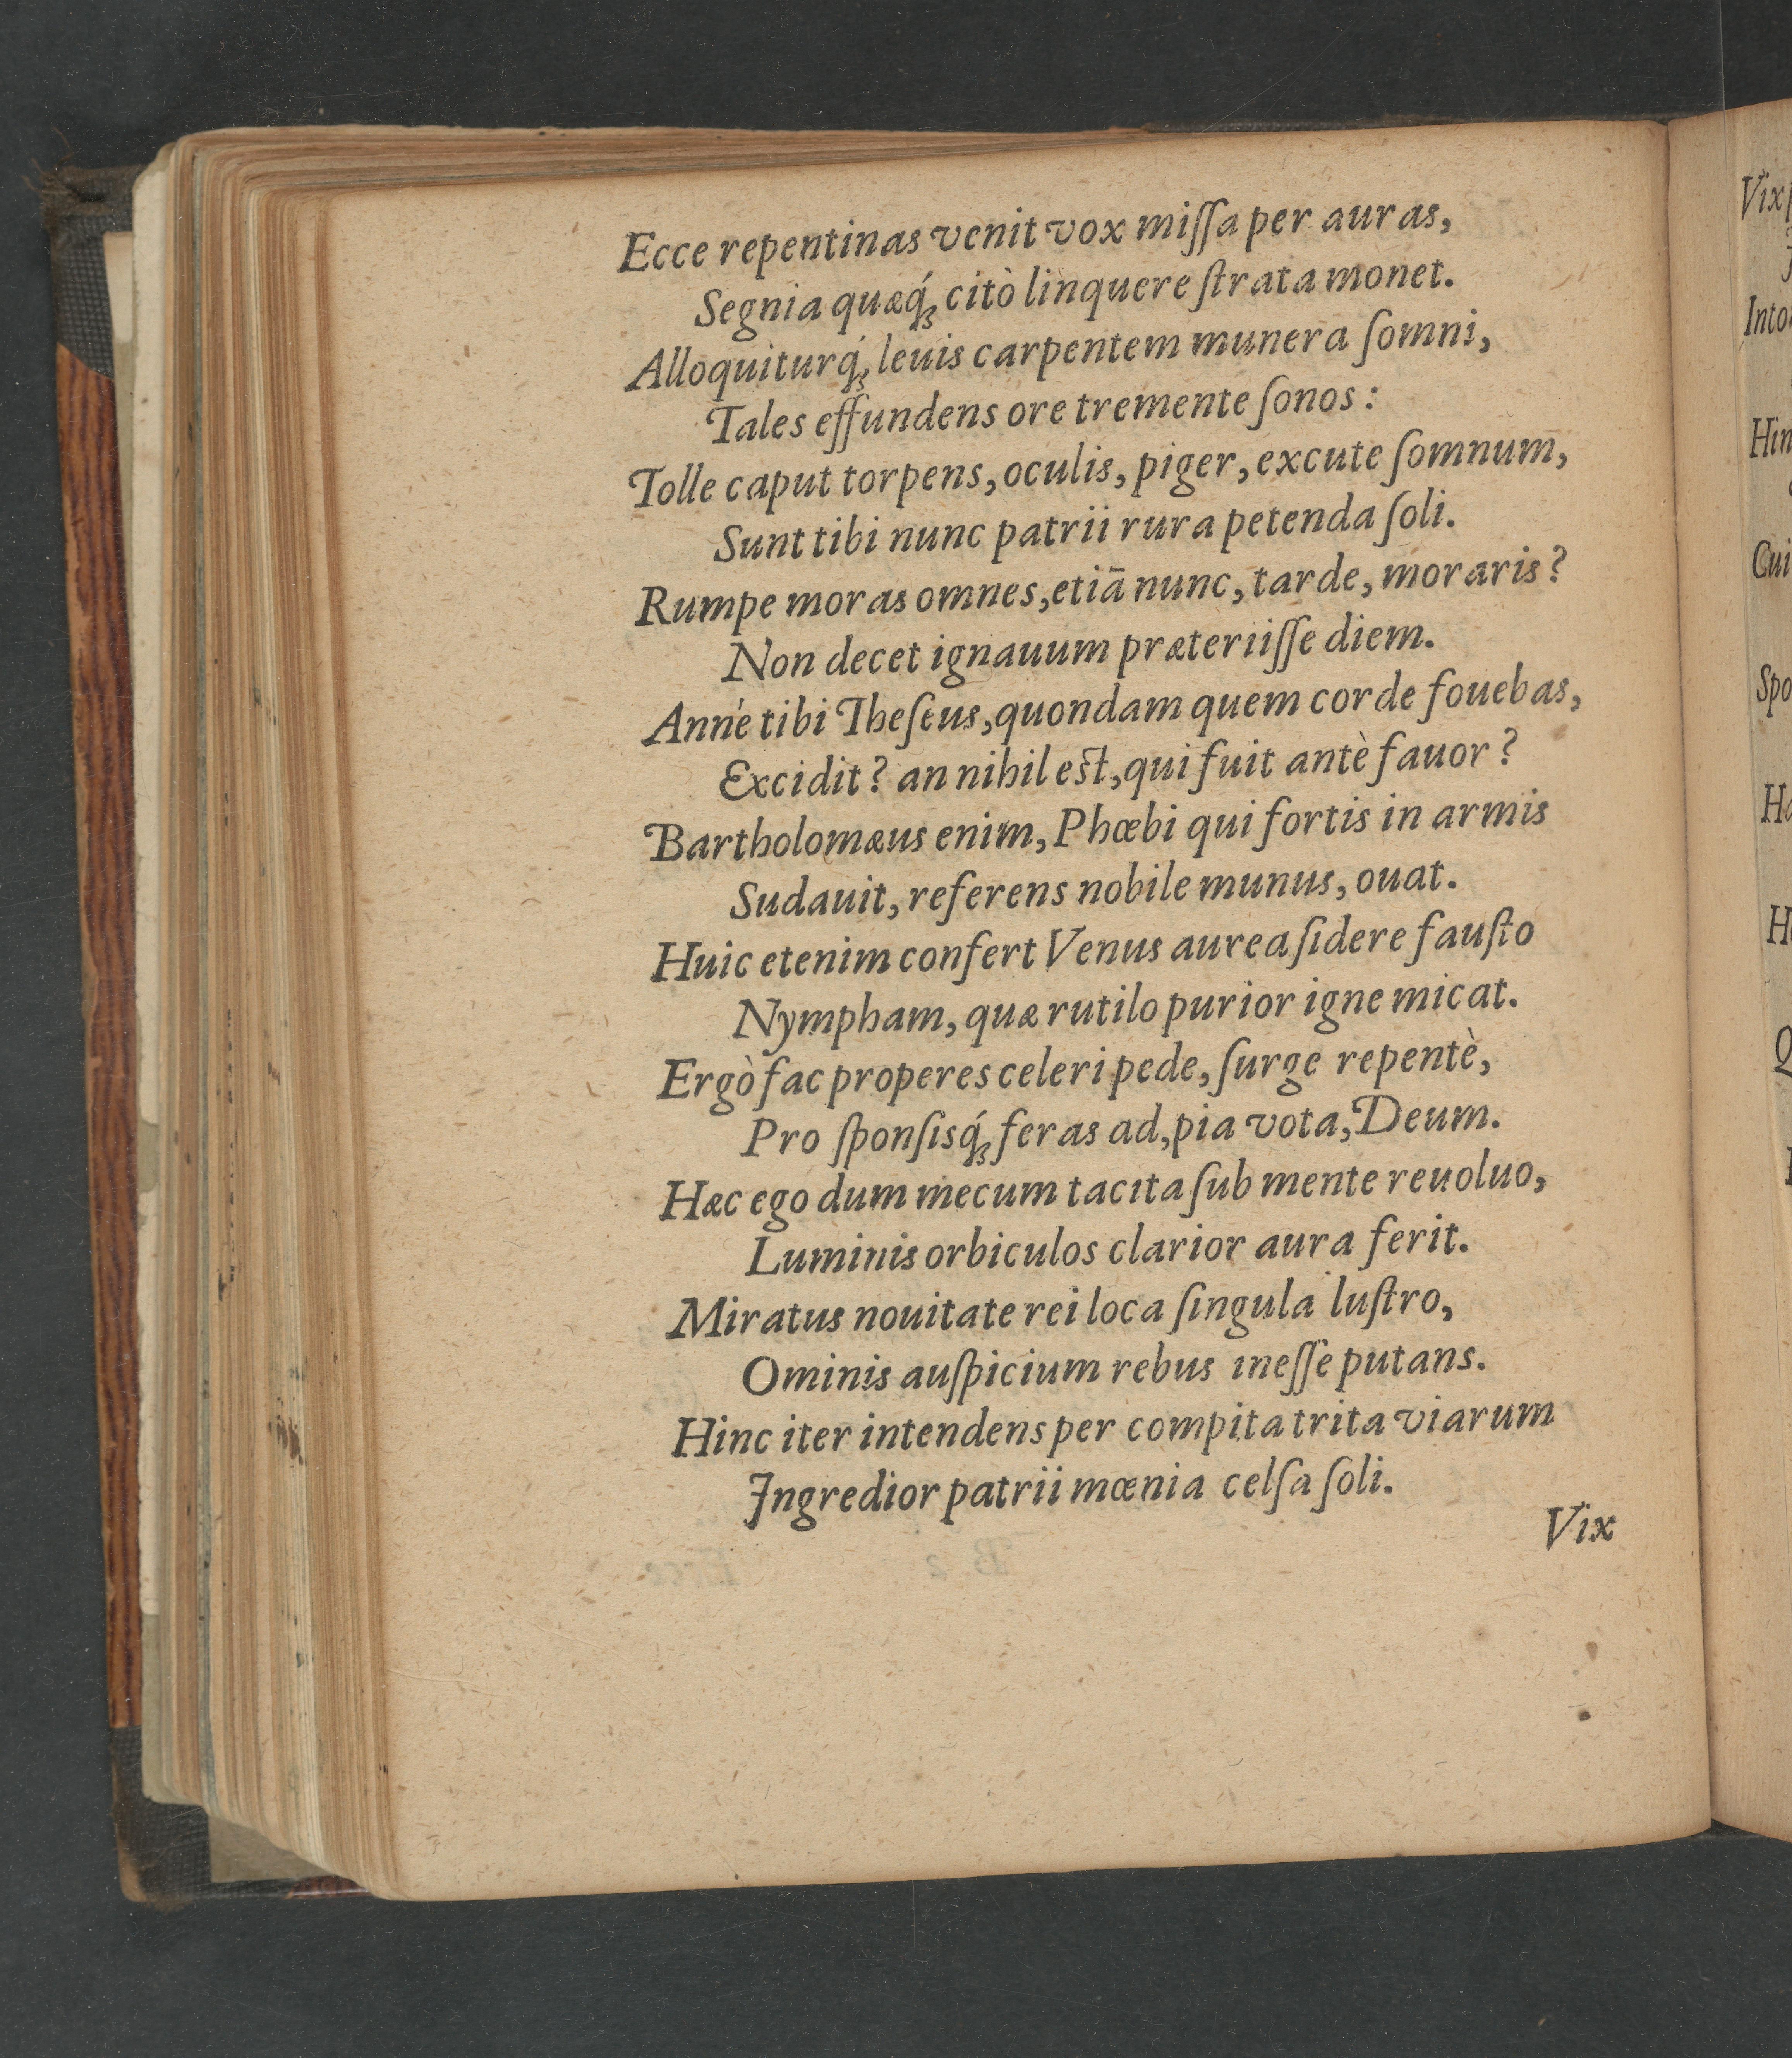 Ecce repentinas venit vox miſſa per auras,
Segnia quæq́ꝫ citò linquere ſtrata monet.
Alloquiturq́ꝫ leuis carpentem munera ſomni,
Tales effundens ore tremente ſonos:
Tolle caput torpens, oculis, piger, excute ſomnum,
Sunt tibi nunc patrii rura petenda ſoli.
Rumpe moras omnes, etiā nunc, tarde, moraris?
Non decet ignauum præteriiſſe diem.
Anné tibi Theſeus, quondam quem corde fouebas,
Excidit? an nihil eſt, qui fuit antè fauor?
Bartholomæus enim, Phœbi qui fortis in armis
Sudauit, referens nobile munus, ouat.
Huic etenim confert Venus aurea ſidere fauſto
Nympham, quæ rutilo purior igne micat.
Ergò fac properes celeri pede, ſurge repentè,
Pro ſponſisq́ꝫ feras ad, pia vota, Deum.
Hæc ego dum mecum tacita ſub mente reuoluo,
Luminis orbiculos clarior aura ferit.
Miratus nouitate rei loca ſingula luſtro,
Ominis auſpicium rebus ineſſe putans.
Hinc iter intendens per compita trita viarum
Ingredior patrii mœnia celſa ſoli.
Vix
Vix
Hin
Cui
Spo